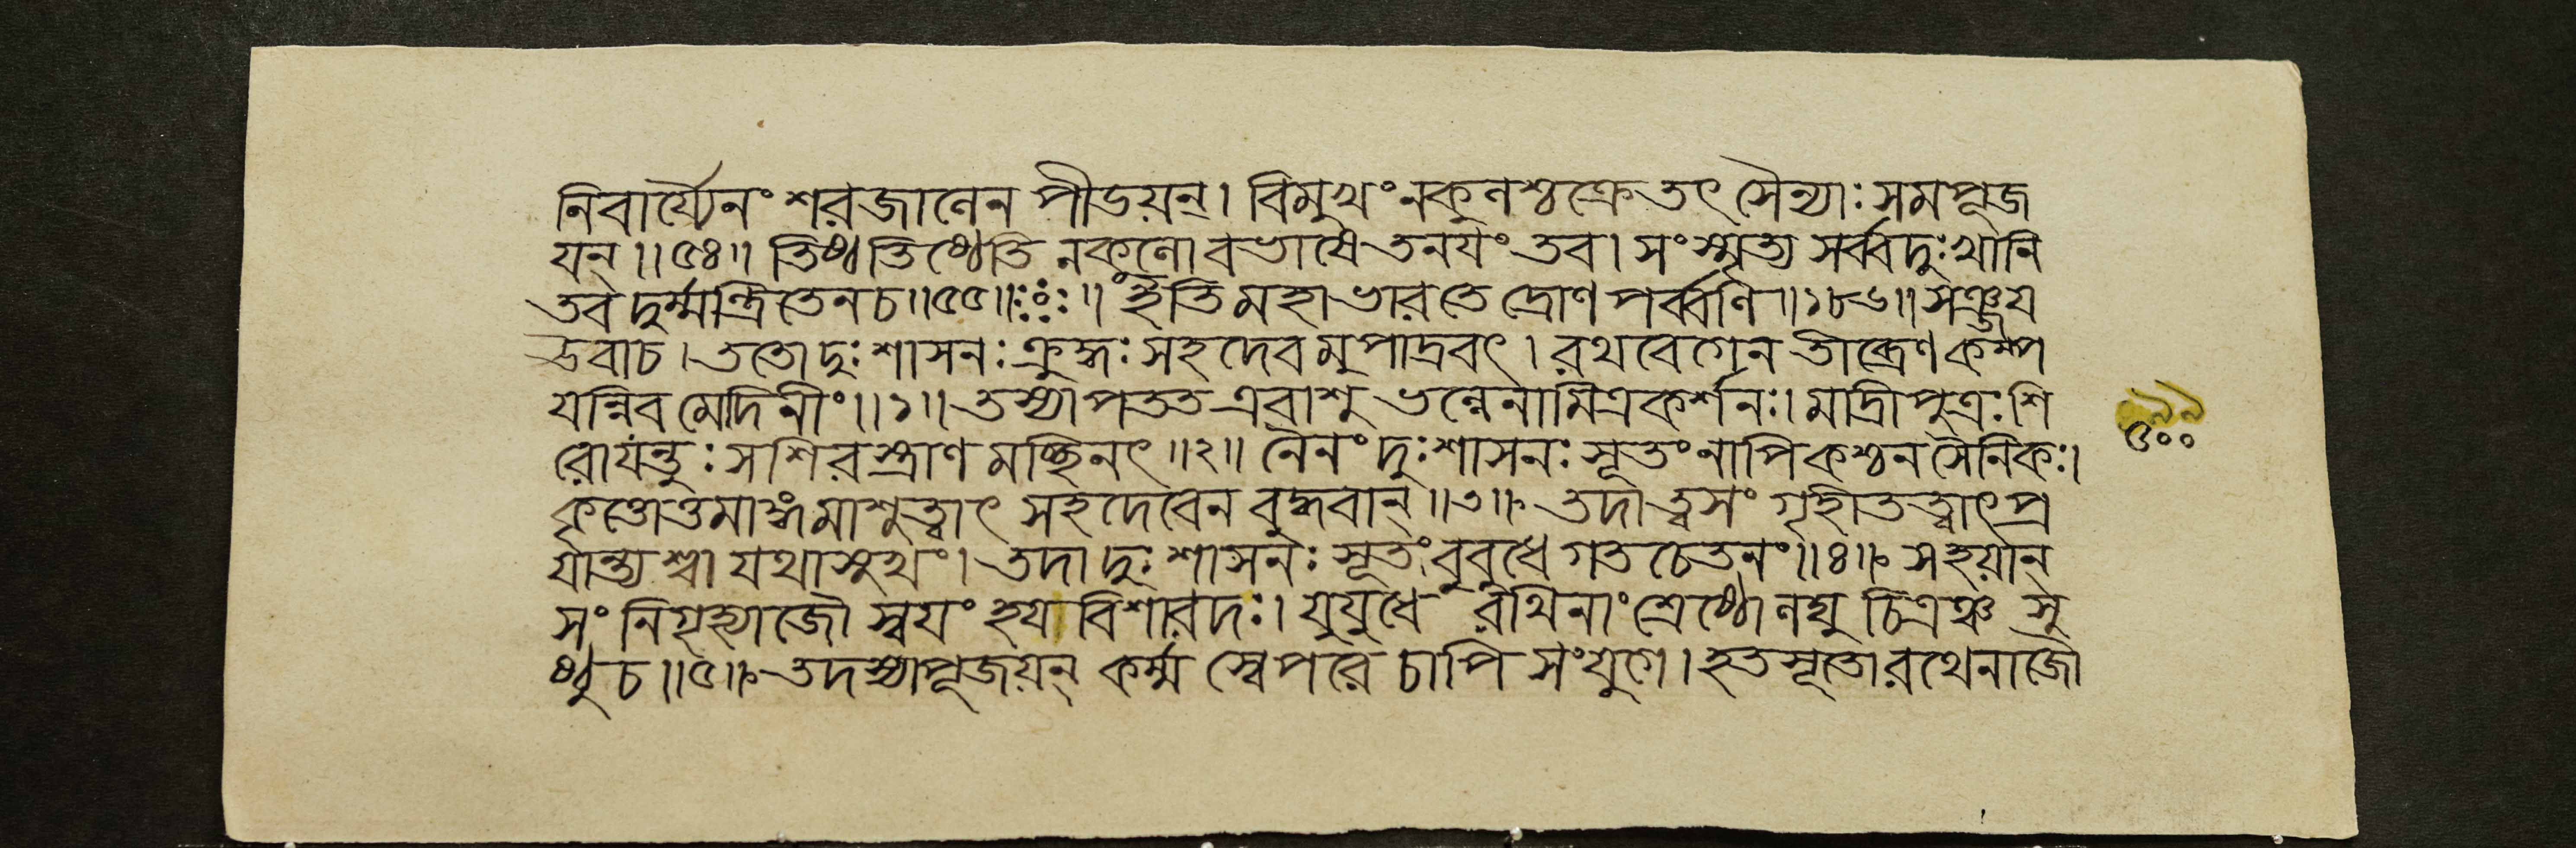 নিবার্য্যৈনং শরজালেন পীডয়ন্। বিমুখং নকুলশ্চক্রে তৎ সৈন্যাঃ সমপূজ
যন্॥৫৪॥ তিষ্ঠ তিষ্ঠেতি নকুলো বভাষে তনযং তব। সংস্মৃত্য সর্ব্বদুঃখানি
তব দুর্ম্মন্ত্রিতেন চ॥৫৫॥ ইতি মহাভারতে দ্রোণপর্ব্বণি॥১৮৬॥ সঞ্জয
উবাচ। ততো দুঃশাসনঃ ক্রুদ্ধঃ সহদেবমুপাদ্রবৎ। রথবেগেন তীব্রেণ কম্প
যন্নিব মেদিনীং॥১॥ তস্যাপতত এবাশু ভল্লেনামিত্রকর্শনঃ। মাদ্রিপুত্রঃ শি
রো যন্তুঃ সশিরস্ত্রাণমচ্ছিনৎ॥২॥ নৈনং দুঃশাসনঃ সূতং নাপি কশ্চন সৈনিকঃ।
কৃত্তোত্তমাঙ্গমাশুত্বাৎ সহদেবেন বুদ্ধবান্॥৩॥ তদা ত্বসংগৃহীতত্বাৎ প্র
যান্ত্যশ্বা যথাসুখং। তদা দুঃশাসনঃ সূতং বুবুধে গতচেতনং॥৪॥ স হয়ান্
সংনিগৃহ্যাজৌ স্বযং হয বিশারদঃ। যুযুধে রথিনাং শ্রেষ্ঠো লঘু চিত্রঞ্চ সু
ষ্ঠু চ॥৫॥ তদস্যাপূজয়ন্ কর্ম্ম স্বে পরে চাপি সংযুগে। হতসূতো রথেনাজৌ
৯৯
৫০০